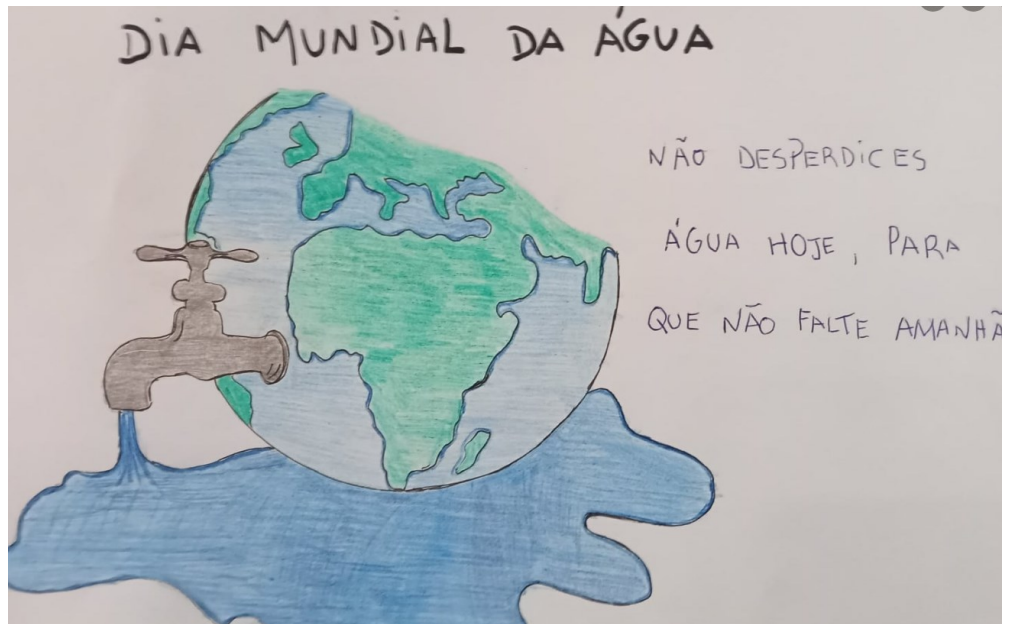 DiA MUNDiAL DA ÁGUA
NÃO DESPERDiCES
ÁGUA HOJE, PARA
QUE NÃO FALTE AMANHÃ